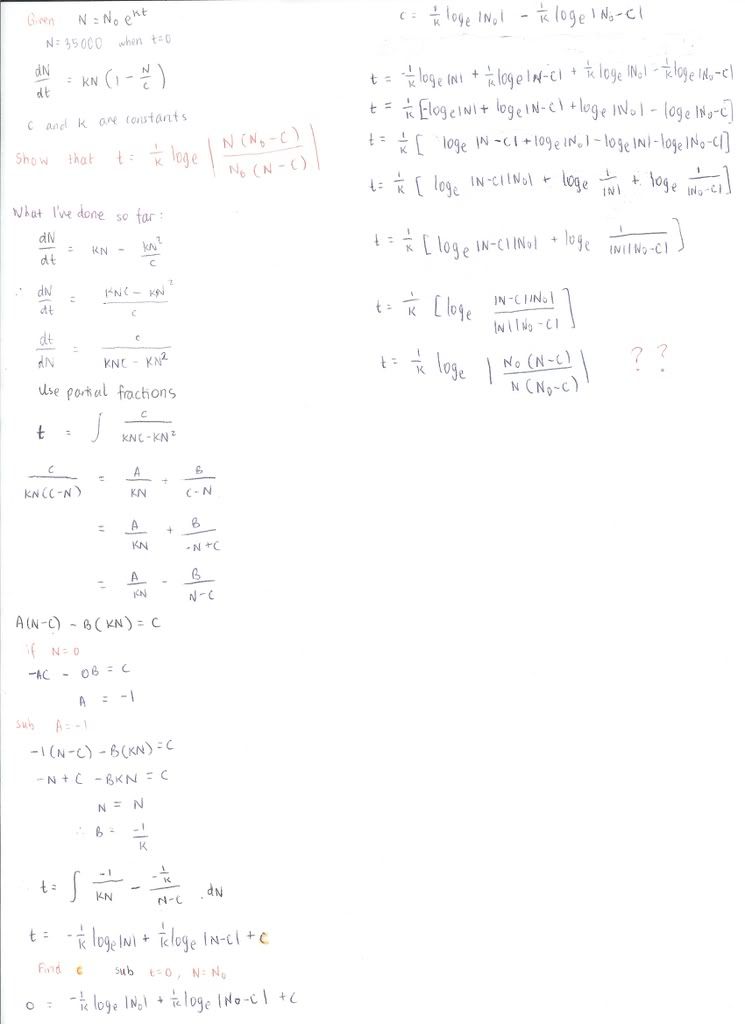 Given N = N₀ e^kt
N = 35000 when t=0
dN/dt = KN (1 - N/C)
C and K are constants
Show that t = 1/K loge | N(N₀-C) / N₀(N-C) |
What I've done so far:
dN/dt = KN - KN²/C
∴ dN/dt = (KNC - KN²)/C
dt/dN = C/(KNC - KN²)
Use partial fractions
t = ∫ C/(KNC-KN²)
C/(KN(C-N)) = A/KN + B/(C-N)
= A/KN + B/(-N+C)
= A/KN - B/(N-C)
A(N-C) - B(KN) = C
if N=0
-AC - 0B = C
A = -1
sub A=-1
-1(N-C) - B(KN) = C
-N + C - BKN = C
N = N
∴ B = -1/K
t = ∫ -1/KN - (-1/K)/(N-C) . dN
t = -1/K loge |N| + 1/K loge |N-C| + C
Find c sub t=0, N=N₀
0 = -1/K loge |N₀| + 1/K loge |N₀-C| + C
C = 1/K loge |N₀| - 1/K loge |N₀-C|
t = -1/K loge |N| + 1/K loge |N-C| + 1/K loge |N₀| - 1/K loge |N₀-C|
t = 1/K [-loge |N| + loge |N-C| + loge |N₀| - loge |N₀-C]
t = 1/K [ loge |N-C| + loge |N₀| - loge |N| - loge |N₀-C|]
t = 1/K [ loge |N-C||N₀| + loge 1/|N| + loge 1/|N₀-C|]
t = 1/K [ loge |N-C||N₀| + loge 1/(|N||N₀-C|) ]
t = 1/K [loge |N-C||N₀| / |N||N₀-C| ]
t = 1/K loge | N₀(N-C) / N(N₀-C) | ? ?